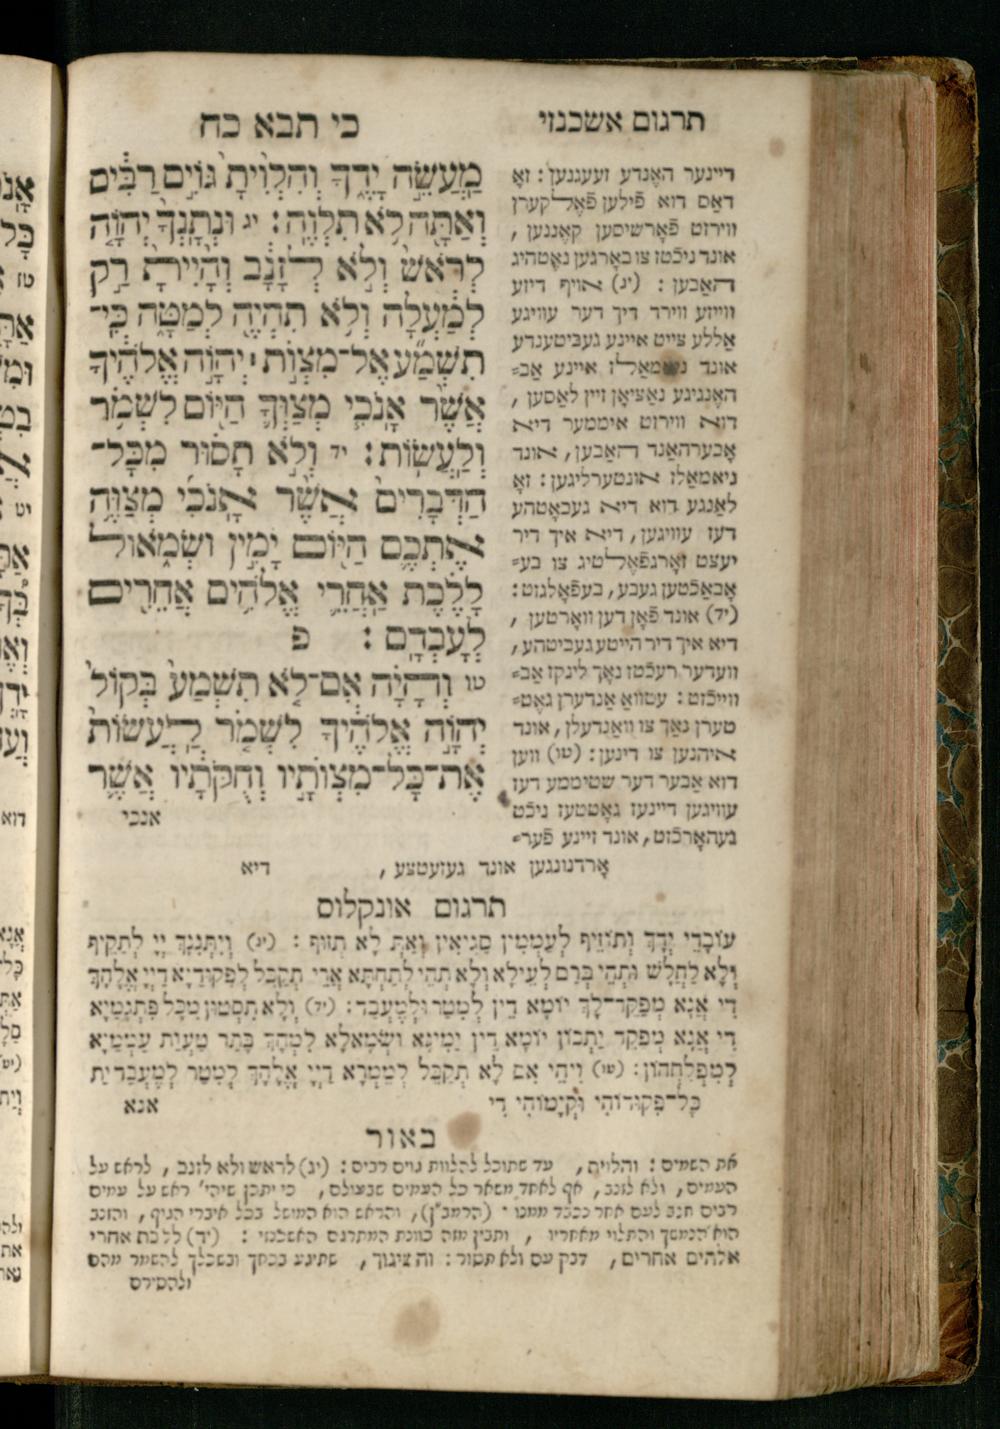 כי תבא כח
תרגום אשכנזי
מַֽעֲשֵׂ֣ה יָדֶ֑ךָ וְהִלְוִ֙יתָ֙ גּוֹיִ֣ם רַבִּ֔ים
וְאַתָּ֖ה לֹ֥א תִלְוֶֽה׃ יג וּנְתָֽנְךָ֙ יְהֹוָ֤ה
לְרֹאשׁ֙ וְלֹ֣א לְזָנָ֔ב וְהָיִ֙יתָ֙ רַ֣ק
לְמַ֔עְלָה וְלֹ֥א תִהְיֶ֖ה לְמָ֑טָּה כִּֽי־
תִשְׁמַ֞ע אֶל־מִצְוֺ֣ת ׀ יְהֹוָ֣ה אֱלֹהֶ֗יךָ
אֲשֶׁ֨ר אָנֹכִ֧י מְצַוְּךָ֛ הַיּ֖וֹם לִשְׁמֹ֥ר
וְלַֽעֲשֽׂוֹת׃ יד וְלֹ֣א תָס֗וּר מִכָּל־
הַדְּבָרִים֙ אֲשֶׁ֨ר אָֽנֹכִ֜י מְצַוֶּ֥ה
אֶתְכֶ֛ם הַיּ֖וֹם יָמִ֣ין וּשְׂמֹ֑אול
לָלֶ֗כֶת אַֽחֲרֵ֛י אֱלֹהִ֥ים אֲחֵרִ֖ים
לְעָבְדָֽם׃ פ
טו וְהָיָ֗ה אִם־לֹ֤א תִשְׁמַע֙ בְּקוֹל֙
יְהֹוָ֣ה אֱלֹהֶ֔יךָ לִשְׁמֹ֤ר לַֽעֲשׂוֹת֙
אֶת־כָּל־מִצְוֺתָ֣יו וְחֻקֹּתָ֔יו אֲשֶׁ֛ר
אנכי
דיינער האֶנדע זעעגנען: זאָ
דאַס דוא פֿילען פֿאֶלקערן
ווירזט פֿאָרשיסען קאֶננען,
אונד ניכֿטז צו באָרגען נאֶטהיג
האַבען: (יג) אויף דיזע
ווייזע ווירד דיך דער עוויגע
אַללע צייט איינע געביטענדע
אונד ניֿמאַלז איינע אַב=
האֶנגיגע נאַציאָן זיין לאַסען,
דוא ווירזט איממער דיא
אָבערהאַנד האַבען, אונד
ניאמאַלז אונטערליגען: זאָ
לאַנגע דוא דיא געבאָטהע
דעז עוויגען, דיא איך דיר
יעצט זאָרגפֿאֶלטיג צו בע=
אָבאַכֿטען געבע, בעפֿאָלגזט:
(יד) אונד פֿאָן דען וואָרטען,
דיא איך דיר הייטע געביטהע,
וועדער רעכֿטז נאָך לינקז אַב=
ווייכֿזט: עטוואַ אַנדערן גאֶט=
טערן נאָך צו וואַנדעלן, אונד
איהנען צו דינען: (טו) ווען
דוא אַבער דער שטיממע דעז
עוויגען דיינעז גאָטטעז ניכֿט
געהאָרכֿזט, אונד זיינע פֿער=
אָרדנונגען אונד געזעטצע, דיא
תרגום אונקלוס
עוֹבָדֵי יְדָךְ וְתוֹזִיף לְעַמְמִין סַגִיאִין וְאַתְּ לָא תְזוּף: (יג) וְיִתְּנִנָךְ יְיָ לְתַקִיף
וְלָא לַחֲלָשׁ וּתְהֵי בְּרַם לְעֵילָא וְלָא תְהֵי לְתַחְתָּא אֲרֵי תְקַבֵּל לְפִקוּדַיָא דַיְיָ אֱלָהָךְ
דִי אֲנָא מְפַקֵּד לָךְ יוֹמָא דֵין לְמִטַר וּלְמֶעְבָּד: (יד) וְלָא תִסְטוּן מִכָּל פִּתְגָמַיָא
דִי אֲנָא מְפַקֵּד יַתְכוֹן יוֹמָא דֵין יַמִינָא וּשְׂמָאלָא לִמְהָךְ בָּתַר טַעֲוַת עַמְמַיָא
לְמִפְלְחִהוֹן: (טו) וִיהֵי אִם לָא תְקַבֵּל לְמֵימְרָא דַיְיָ אֱלָהָךְ לְמִטַר לְמֶעְבַּד יַת
כָּל־פִּקוּדוֹהִי וּקְיָמוֹהִי דִי אנא
באור
את השמים: והלוית, עד שתוכל להלוות גוים רבים: (יג) לראש ולא לזנב, לראש על
העמים, ולא לזנב, אף לאחד משאר כל העמים שבעולם, כי יתכן שיהי' ראש על עמים
רבים וזנב לעם אחר נכבד ממנו (הרמב"ן), והראש הוא המושל בכל איברי הגוף, והזנב
הוא הנמשך והתלוי מאחריו, ותבין מזה כוונת המתרגם האשכנזי: (יד) ללכת אחרי
אלהים אחרים, דבק עם ולא תסור: וה ציווך, שתיגע בכחך ובשכלך להשמר מהם
ולהסירם